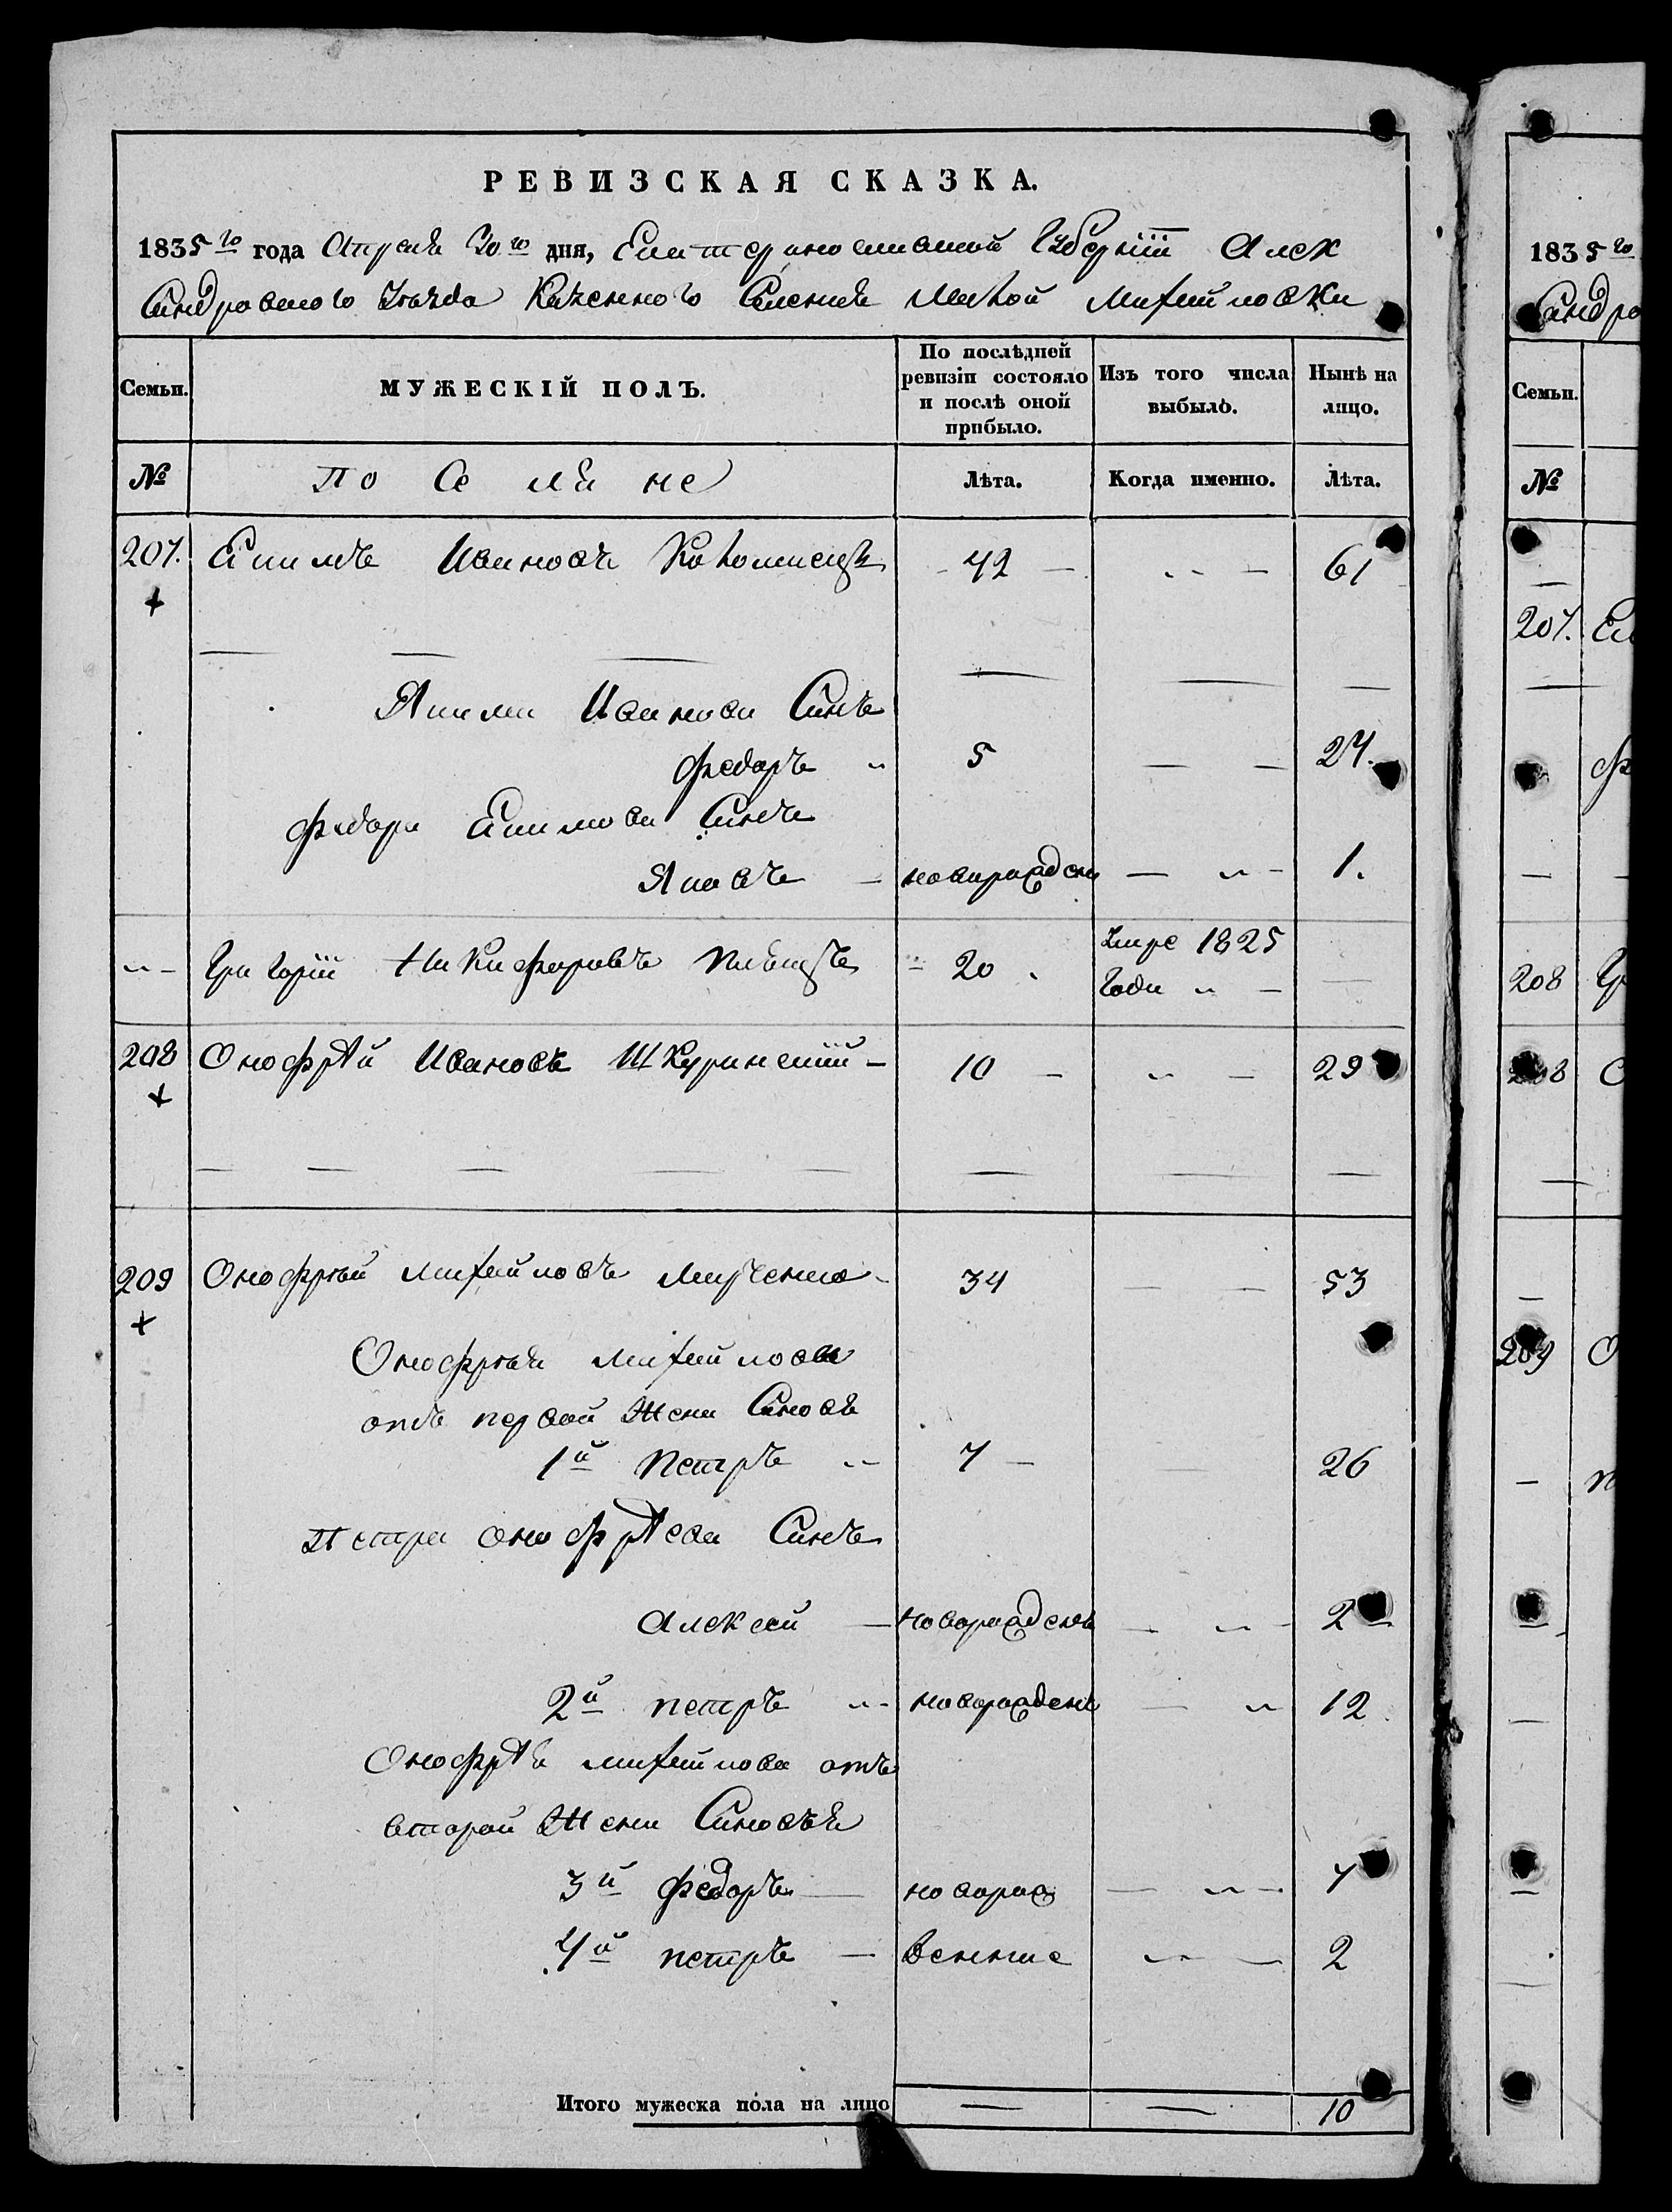 РЕВИЗСКАЯ СКАЗКА.
1835го года Апреля 30го дня, Екатеринославской Губернїи Алек
сандровского Уезда Казенного Селения Малой Михайловки
Семьи. МУЖЕСКІЙ ПОЛЪ. По послѣдней ревизіи состояло и послѣ оной прибыло. Изъ того числа выбыло. Нынѣ на лицо.
№ поселяне Лѣта. Когда именно. Лѣта.
207. Екимъ Ивановъ Коломиецъ 42 61
Якима Иванова Синъ
Федоръ 5 24.
Федора Екимова Синъ
Яковъ новорожден 1.
Григорїй Никифоровъ 20 умре 1825
года
208 Онофрѣй Ивановъ Шкуринскїй 10 29
209 Онофрѣй Михайловъ 34 53
Онофрѣя Михайлова
отъ первой Жени Синовя
1й Петръ 7 26
Петра Онофрѣева Синъ
Алексей новорожденъ 2
2й Петръ новорожденъ 12
Онофрѣя Михайлова отъ
второй Жени Синовъя
3й Федоръ новорож 7
4й Петръ денние 2
Итого мужеска пола на лицо 10
1835го
сандро
Семьи.
№
207. Ек
Фе
208 Гр
208 О
209 О
П